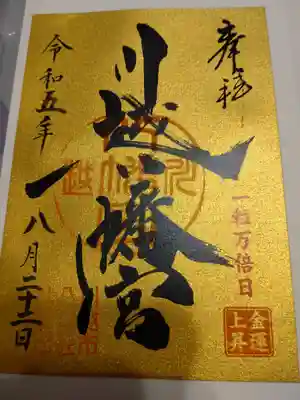 奉拝
一粒万倍日
金運
上昇
川越八幡宮
令和五年
八月二十二日